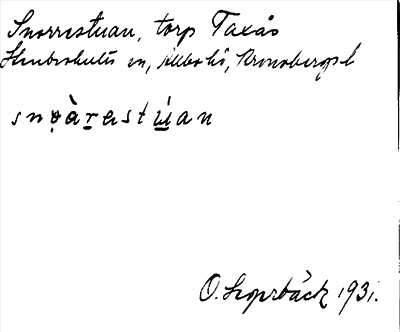 Snorrestuan, torp Taxås
Stenbrohults sn, Allbo hd, Kronobergs l
snɷ̣̀arestúan
O. Lagerbäck 1931.